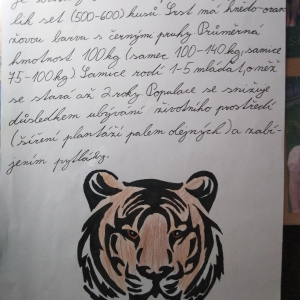 lik set (500-600) kusů Srst má hnědo-oran-
žovou barvu s černými pruhy Průměrná
hmotnost 100kg (samec 100-140kg, samice
75-100kg) Samice rodí 1-5 mláďat, o něž
se stará až 2 roky Populace se snižuje
důsledkem ubývání životního prostředí
(šíření plantáží palem olejných) a zabí-
jením pytláky.